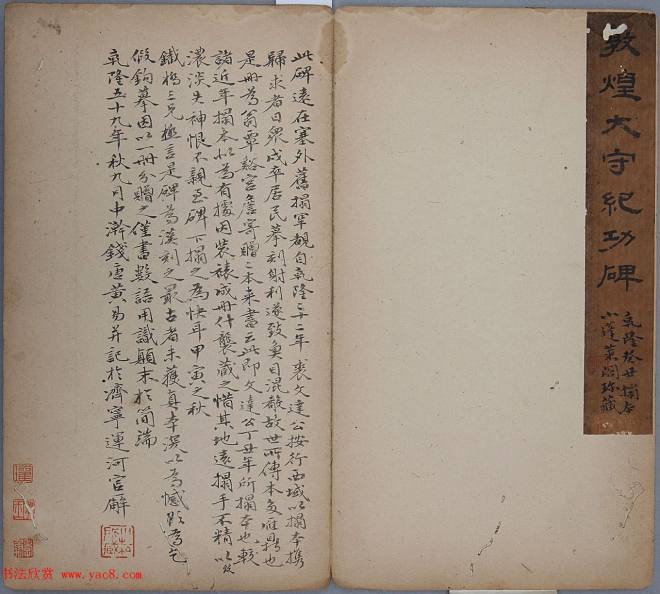 敦煌太守紀功碑
乾隆癸丑搨本
小蓬萊閣珍藏
此碑遠在塞外舊搨罕覯自乾隆二十二年裘文達公按行西域以搨本攜
歸求者日衆戍卒居民摹刻射利遂致魚目混殽故世所傳本多雁鼎也
是冊為翁覃谿宮詹寄贈本来書云此即文達公丁丑年所搨本也較
諸近年搨本以為有據因裝裱成冊什襲藏之惜其地遠搨手不精以致
濃淡失神恨不親至碑下搨之為快耳甲寅之秋
鐵橋三兄極言是碑為漢刻之最古者未獲真本深以為憾欵為乞
假鉤摹因以一冊分贈之僅書數語用識顛末於簡端
乾隆五十九年秋九月中澣錢唐黃易并記於濟寧運河官廨
书法欣赏 www.yac8.com